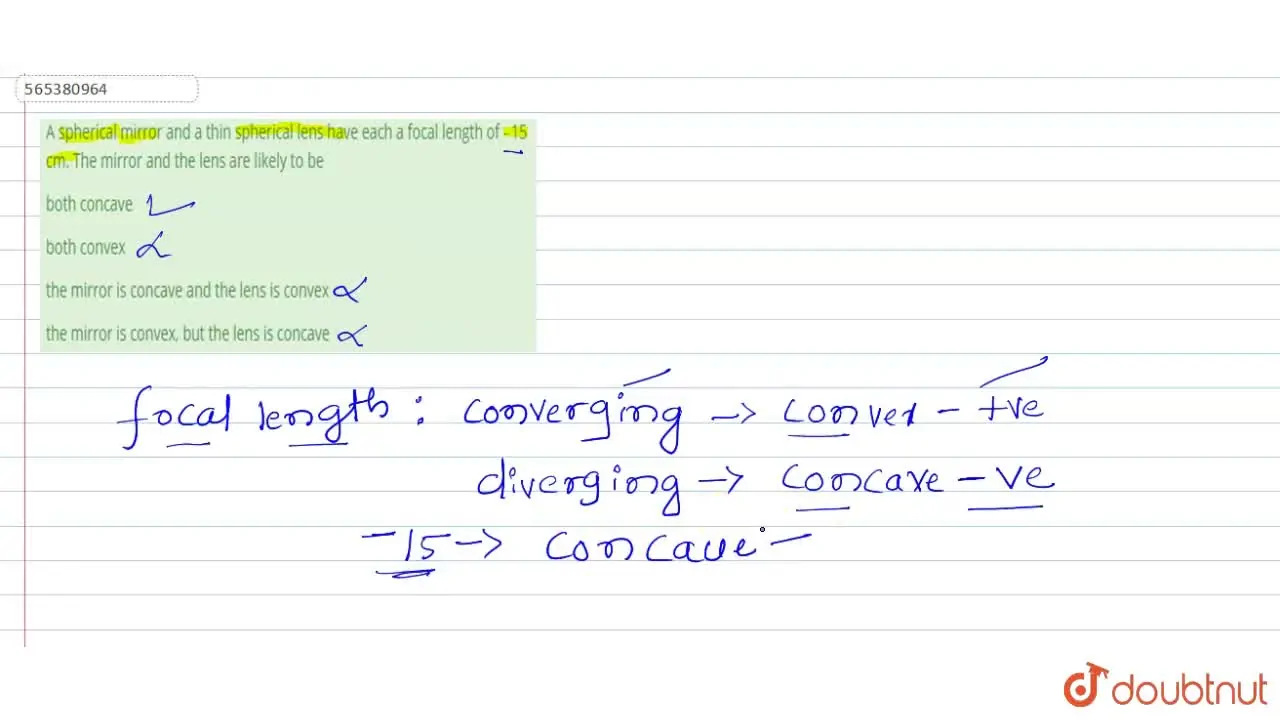 565380964
A spherical mirror and a thin spherical lens have each a focal length of -15
cm. The mirror and the lens are likely to be
both concave
both convex
the mirror is concave and the lens is convex
the mirror is convex, but the lens is concave
focal length : converging -> convex - +ve
diverging -> concave - ve
-15 -> concave -
doubtnut